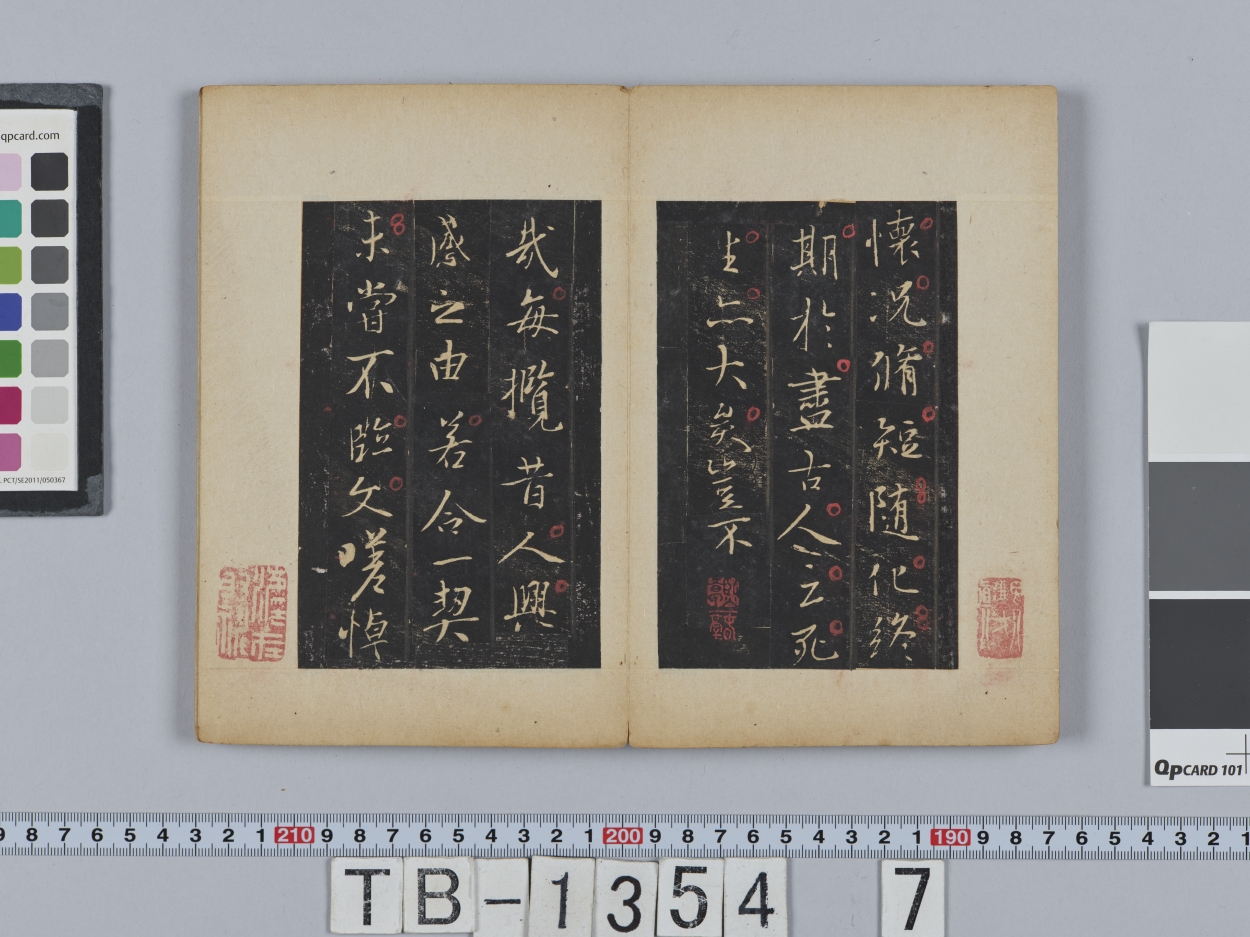 懐况脩短随化終
期於盡古人云死
生亦大矣豈不
哉每攬昔人興
感之由若合一契
未嘗不臨文嗟悼
qpcard.com
PCT/SE2011/050367
QPCARD 101
9 8 7 6 5 4 3 2 1 210 9 8 7 6 5 4 3 2 1 200 9 8 7 6 5 4 3 2 1 190 9 8 7 6 5 4 3 2 1
TB-1354 7